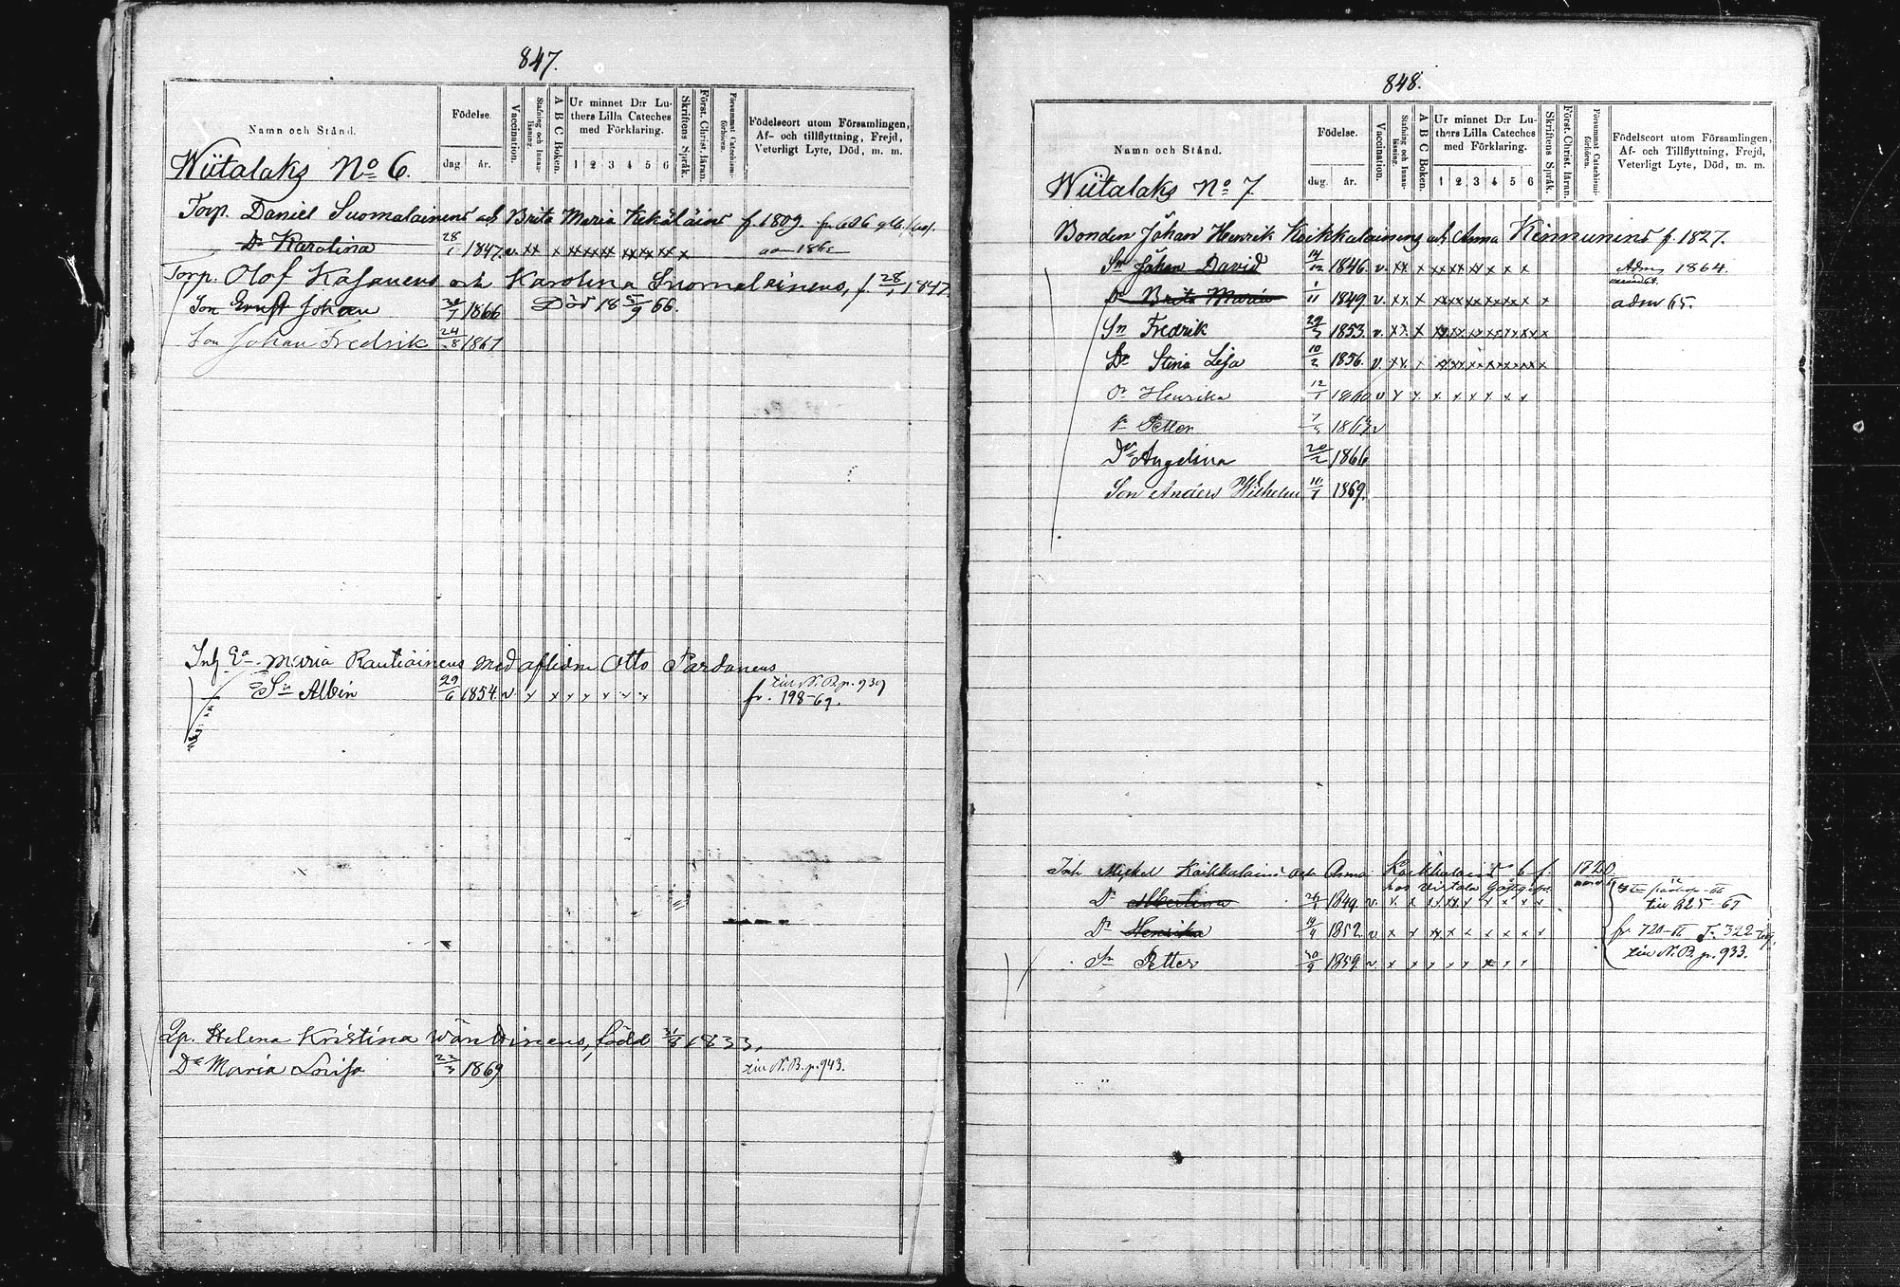 847.
Namn och Stånd.
Födelse
dag. år.
Vaccination.
Stafning och Innan-läsning.
A B C Boken.
Ur minnet D:r Lu-
thers Lilla Cateches
med Förklaring.
1 2 3 4 5 6
Skriftens Språk.
Först. Christ. läran.
Försummat Catechismi-förhören.
Födelseort utom Församlingen,
Af- och tillflyttning, Frejd,
Veterligt Lyte, Död, m. m.
Wiitalaks No 6.
Torp. Daniel Suomalainens och Brita Maria f. 1809. fr. 606
Dr Karolina 28/1 1847. v. xx x xxxxxx xxxxxx x
Torp. Olof Kasanens och Karolina Suomalainens, f. 28/1 1847
Son Ernst Johan 1866 Död 18 5/9 66.
Son Johan Fredrik 24/8 1867
Inh Ea Maria Rautiainens med aflidne Otto Pardanens
Sn Albin 29/6 1854 v x x x x x x x till N.B.p. 939
fr. 198-69.
Helena Kristina född 1833,
Dr Maria Lovisa 23/3 1869 till N.B.p. 943.
848.
Namn och Stånd.
Födelse.
dag. år.
Vaccination.
Stafning och Innan-läsning.
A B C Boken.
Ur minnet D:r Lu-
thers Lilla Cateches
med Förklaring.
1 2 3 4 5 6
Skriftens Språk.
Först. Christ. läran.
Försummat Catechismi-förhören.
Födelseort utom Församlingen,
Af- och Tillflyttning, Frejd,
Veterligt Lyte, Död, m. m.
Wiitalaks No 7.
Bonden Johan Henrik Koikkalainens och Anna Kinnunens f. 1827.
Sn Johan David 14/12 1846. v. xx x xxxxxx x x x Adm 1864.
Dr Brita Maria 1/11 1849 v. xx x xxxxxxxxxx x adm 65.
Sn Fredrik 29/3 1853. v. xx x xxxxxxxxxx
Dr Stina Lisa 10/2 1856. v. xx x xxxxxxxxxx
Dr Henrika 12/1 1860 v x x x x x x x x
Sn Petter 186 v
Dr Angelina 20/2 1866
Son Anders Wilhelm 10/1 1869.
Inh Mickel Koikkalain och Anna f. 1820
Dr Albertina 1849 v. x x xxxx x x x x till 825-65
Dr Henrika 19/4 1852. v x x xxx x x x x x fr 720- T. 322-
Sn Petter 30/9 1859 v x x x x x x x x till N.B.p. 933.